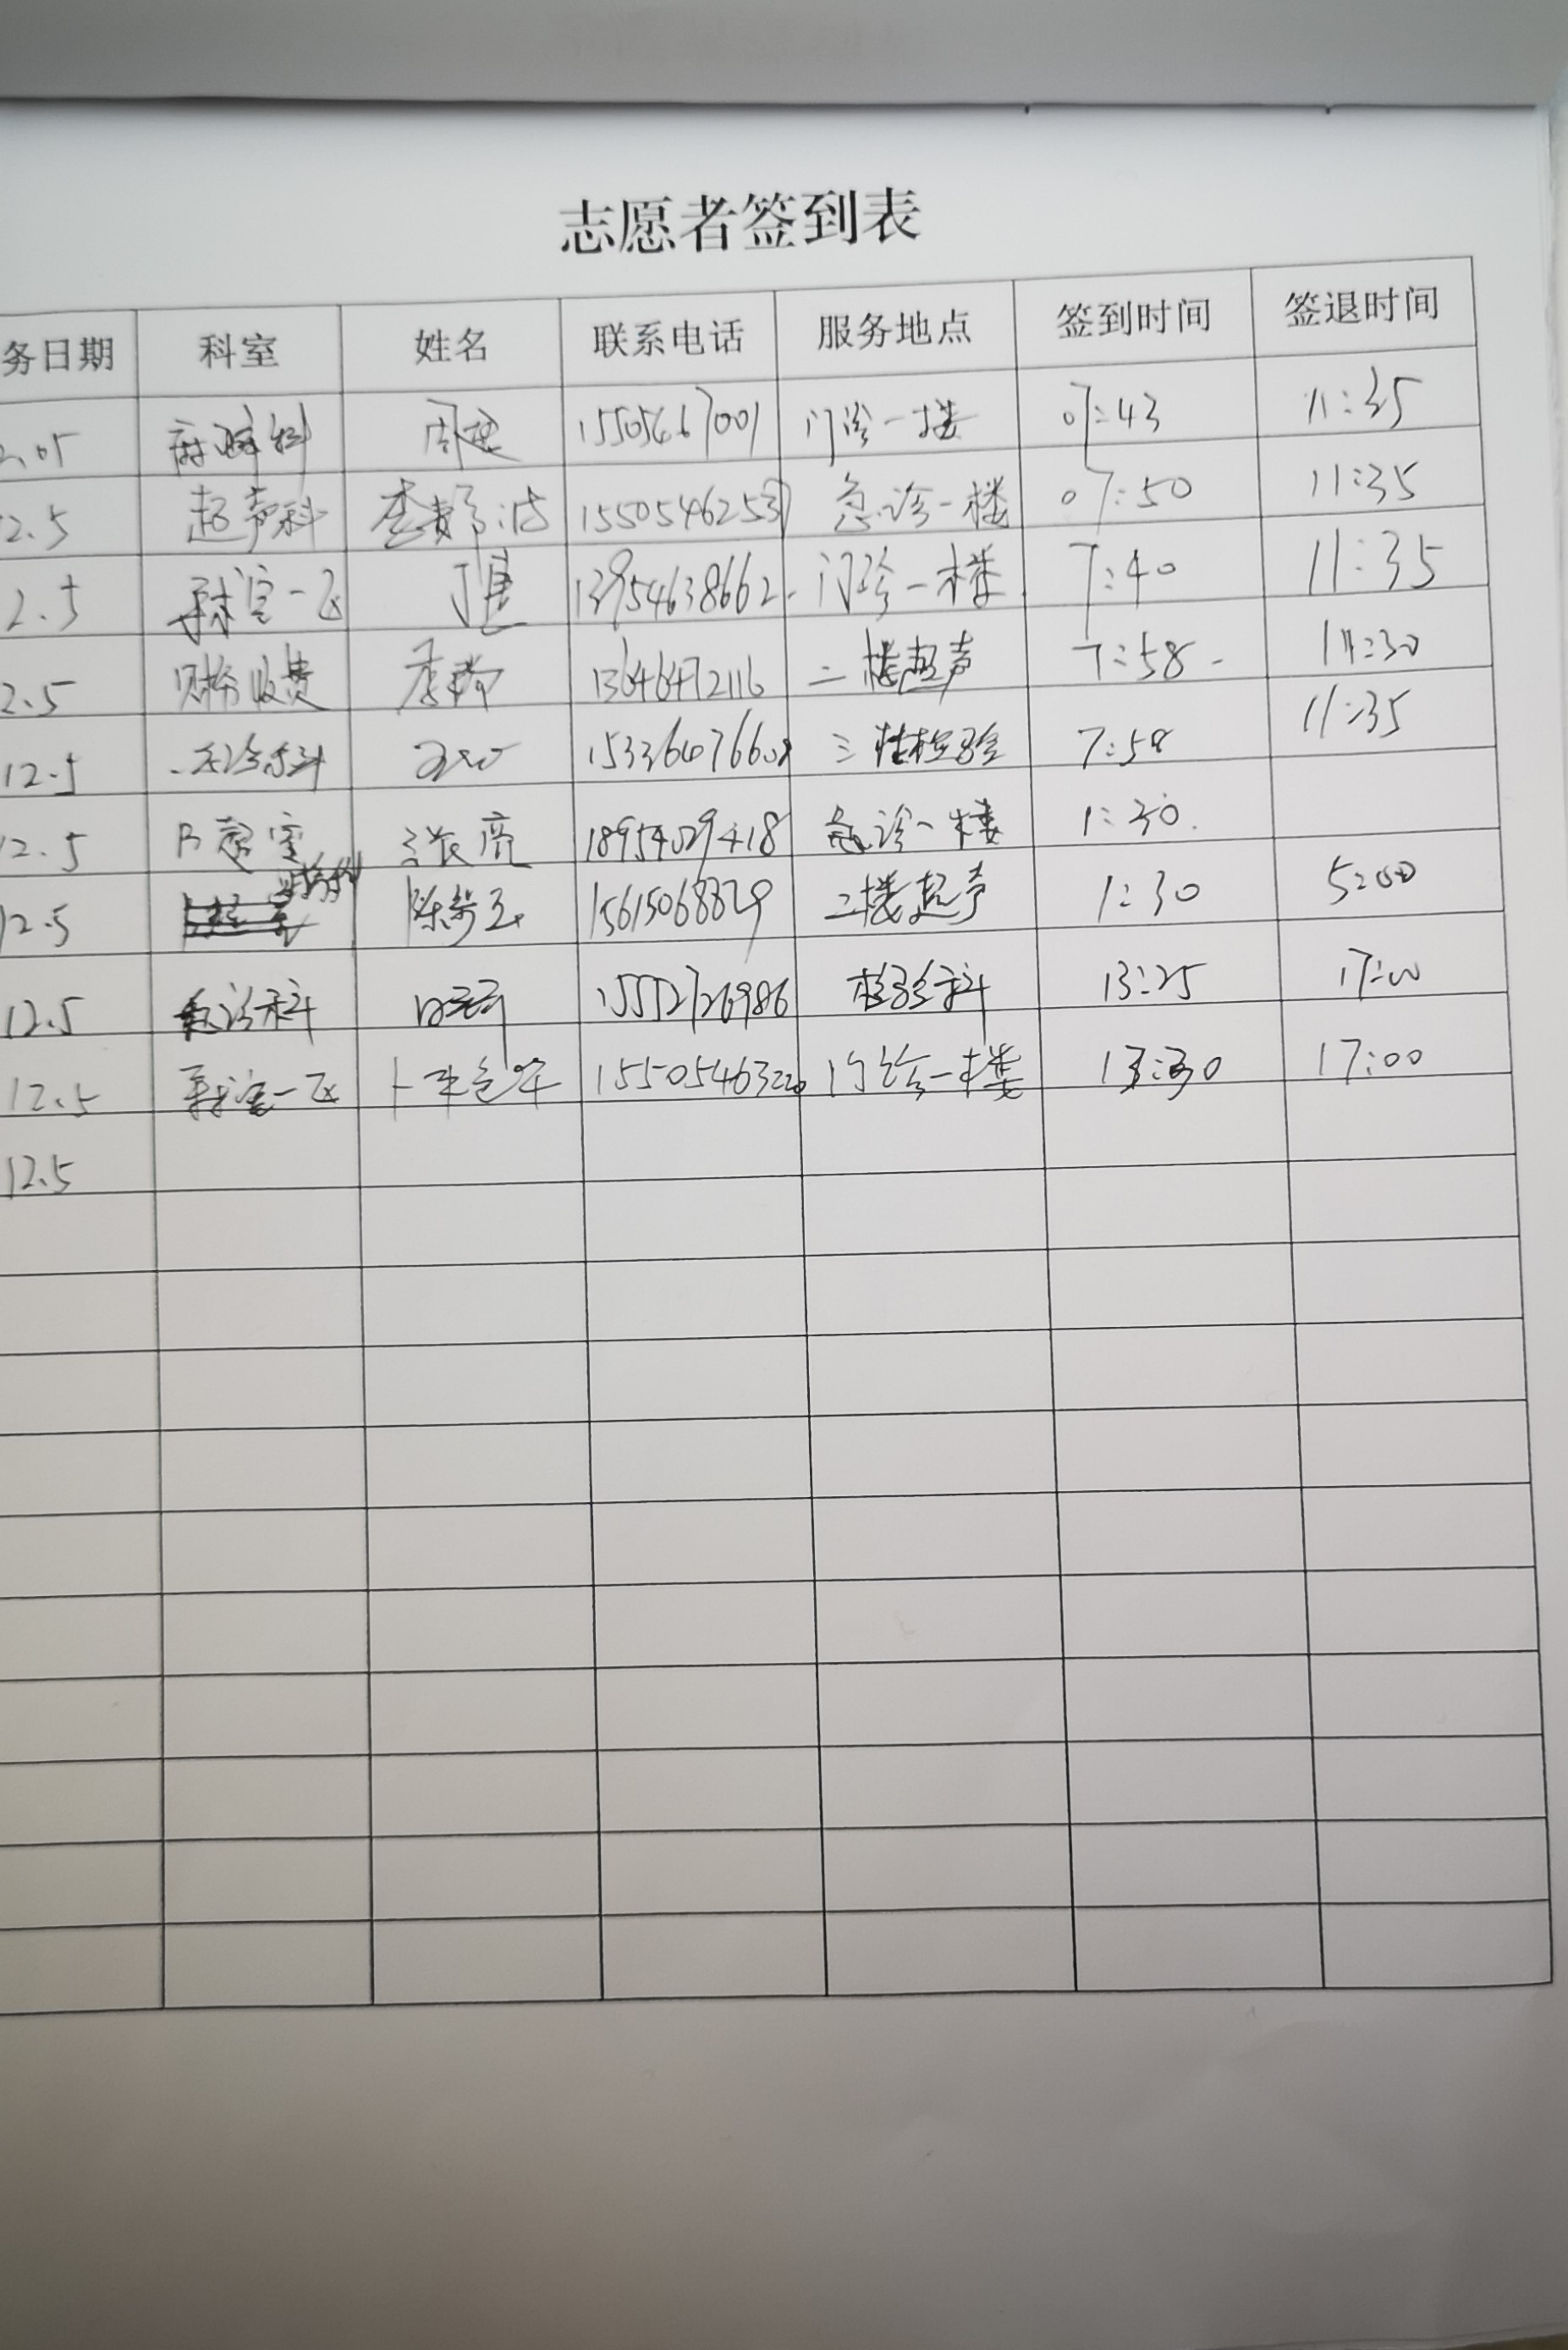 志愿者签到表
务日期 科室 姓名 联系电话 服务地点 签到时间 签退时间
2.05 麻醉科 周 15505467001 门诊一楼 07:43 11:35
2.5 超声科 15505462537 急诊一楼 07:50 11:35
2.5 手术室一区 13954638662 门诊一楼 7:40 11:35
2.5 财务收费 李 13646472116 二楼超声 7:58 11:30
12.5 1533647660 三楼检验 7:58 11:35
12.5 B超室 张亮 18954029418 急诊一楼 1:30
12.5 陈 15615068829 二楼超声 1:30 5:00
12.5 急诊科 15552726986 检验科 13:25 17:00
12.5 手术室一区 1550546322 门诊一楼 13:30 17:00
12.5